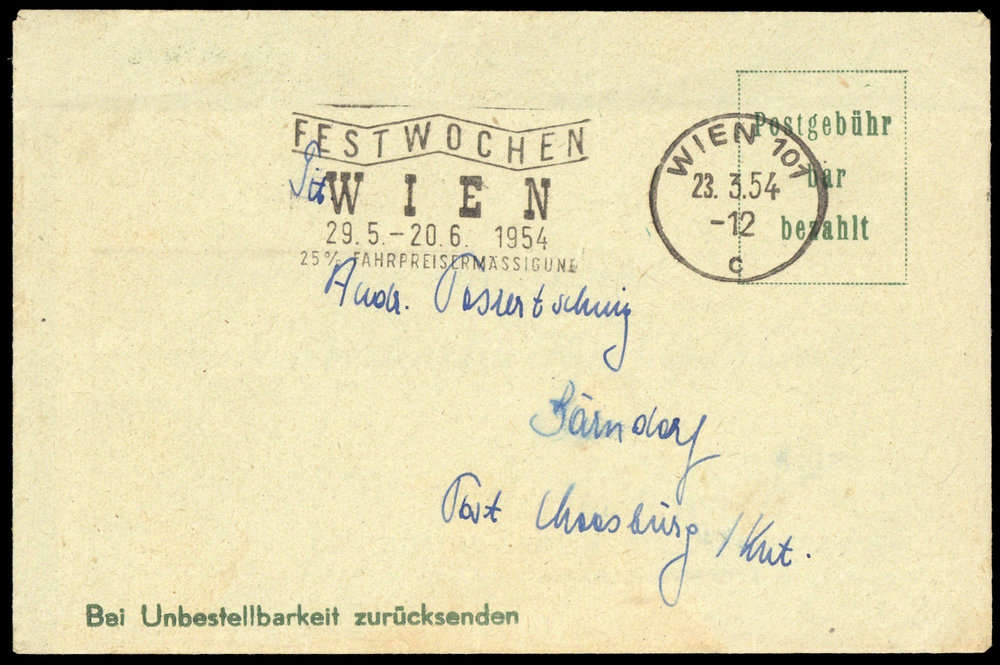 FESTWOCHEN
WIEN
29. 5. – 20. 6. 1954
25% FAHRPREISERMÄSSIGUNG
WIEN 101
23. 3. 54
-12
c
Postgebühr
bar
bezahlt
Andr.
Bärndorf
Post Moosburg / Knt.
Bei Unbestellbarkeit zurücksenden